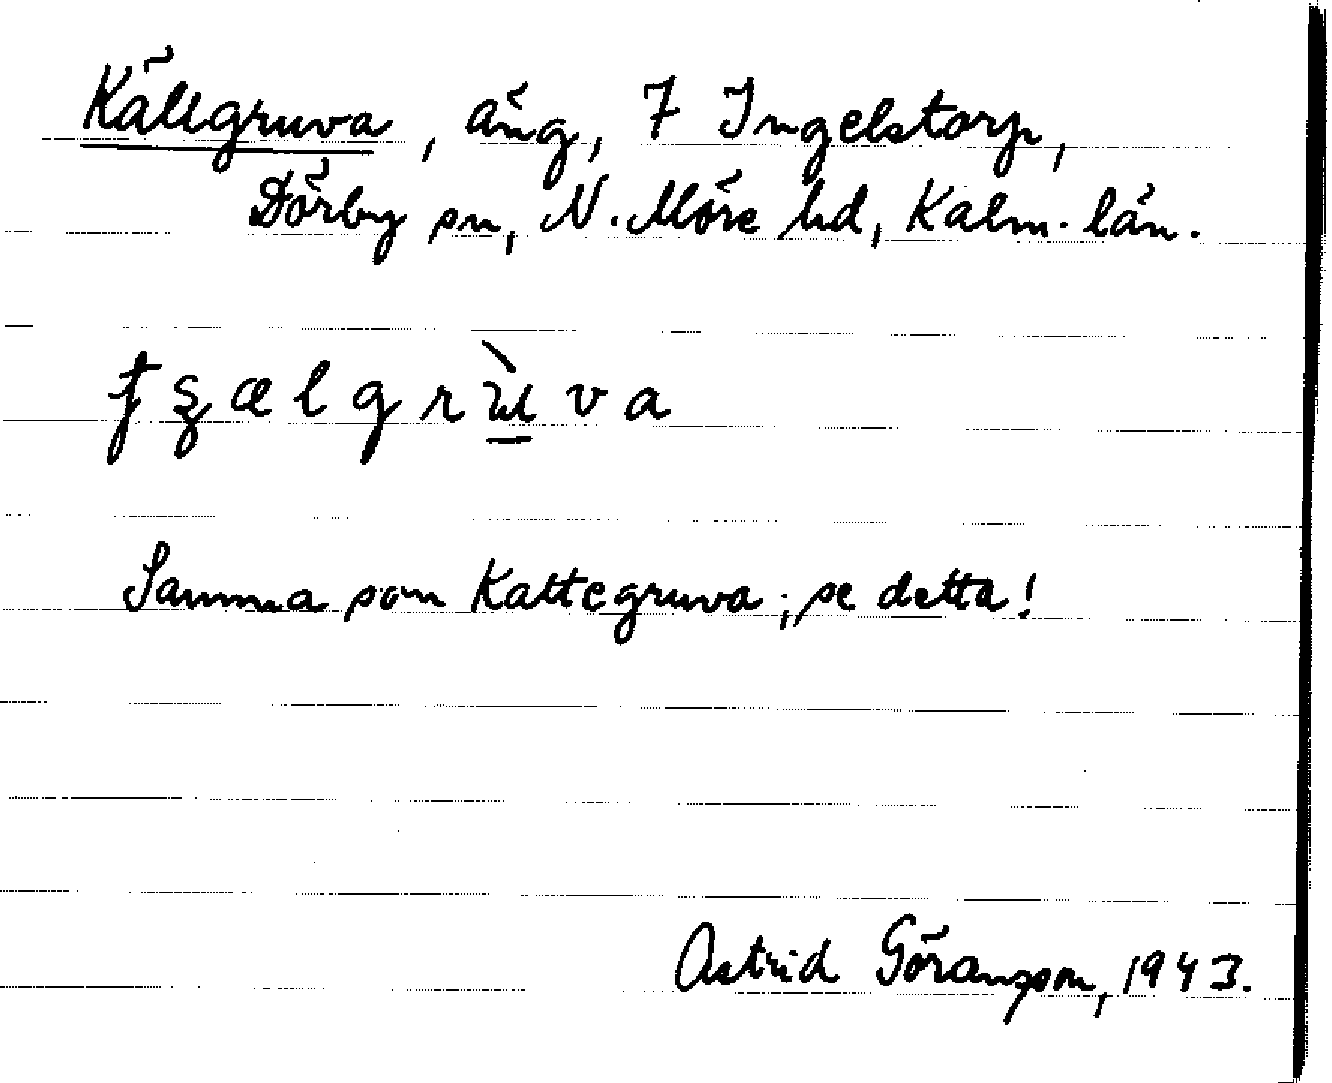 Källgruva, äng, 7 Ingelstorp,
Dörby sn, N. Möre hd, Kalm. län.
Samma som Kattegruva; se detta!
Astrid Göransson, 1943.